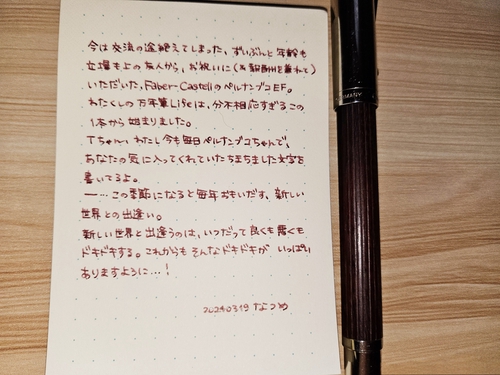 今は交流の途絶えてしまった、ずいぶんと年齢も
立場も上の友人から、お祝いに(&報酬を兼ねて)
いただいた、Faber-CastellのペルナンブコEF。
わたくしの万年筆Lifeは、分不相応すぎるこの
1本から始まりました。
Tちゃん、わたし今も毎日ペルナンブコちゃんで、
あなたの気に入ってくれていたちまちました文字を
書いてるよ。
―…この季節になると毎年おもいだす、新しい
世界との出逢い。
新しい世界と出逢うのは、いつだって良くも悪くも
ドキドキする。これからもそんなドキドキが いっぱい
ありますように…!
20240319 なつめ
GERMANY